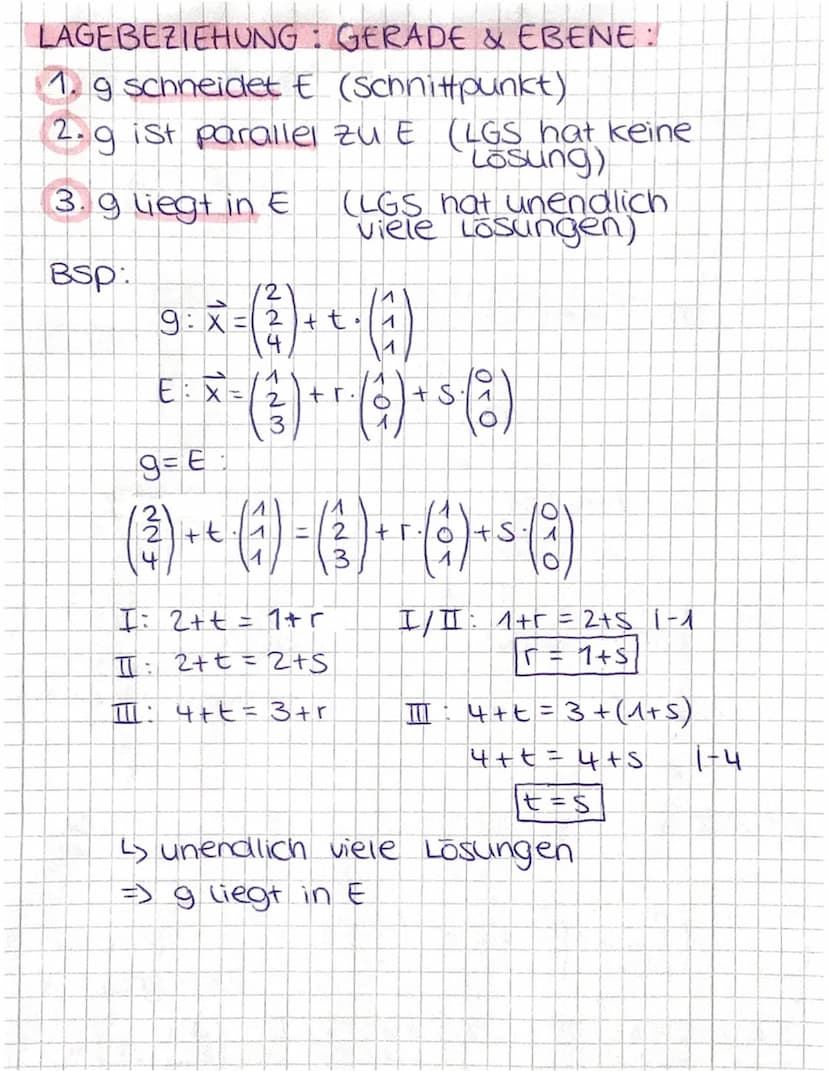 LAGEBEZIEHUNG : GERADE & EBENE :
1. g schneidet E (Schnittpunkt)
2. g ist parallel zu E (LGS hat keine
Lösung)
3. g liegt in E (LGS hat unendlich
viele Lösungen)
BSP:
g: x⃗ = (2 2 4) + t · (1 1 1)
E: x⃗ = (1 2 3) + r · (1 0 1) + s · (0 1 0)
g = E :
(2 2 4) + t · (1 1 1) = (1 2 3) + r · (1 0 1) + s · (0 1 0)
I: 2+t = 1+r I/II: 1+r = 2+s |-1
II: 2+t = 2+s r = 1+s
III: 4+t = 3+r III: 4+t = 3+(1+s)
4+t = 4+s |-4
t = s
↳ unendlich viele Lösungen
=> g liegt in E